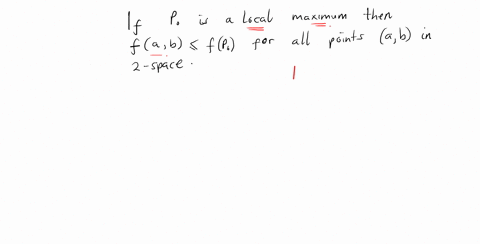 If P₀ is a local maximum then
f(a,b) ≤ f(P₀) for all points (a,b) in
2-space.